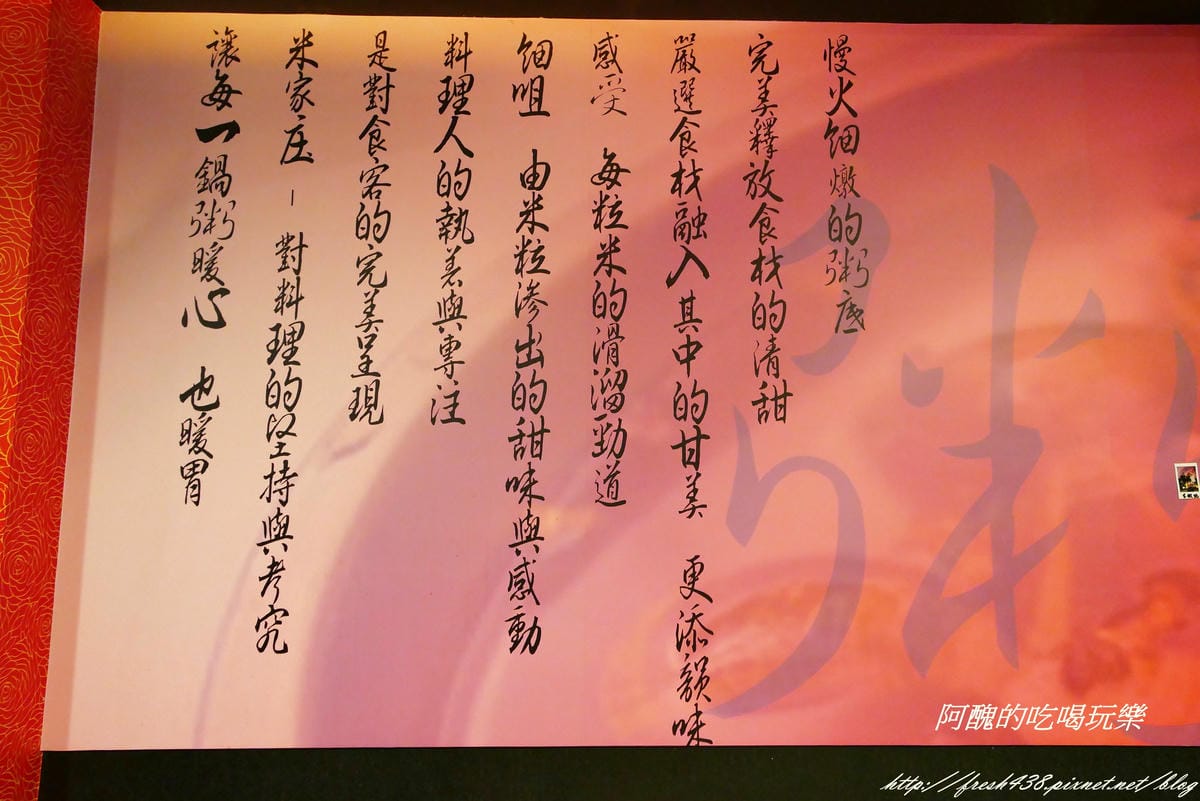 慢火細燉的粥底
完美釋放食材的清甜
嚴選食材融入其中的甘美 更添韻味
感受 每粒米的滑溜勁道
細咀 由米粒滲出的甜味與感動
料理人的執著與專注
是對食客的完美呈現
米家庄 - 對料理的堅持與考究
讓每一鍋粥暖心 也暖胃
粥
阿醜的吃喝玩樂
http://fresh438.pixnet.net/blog